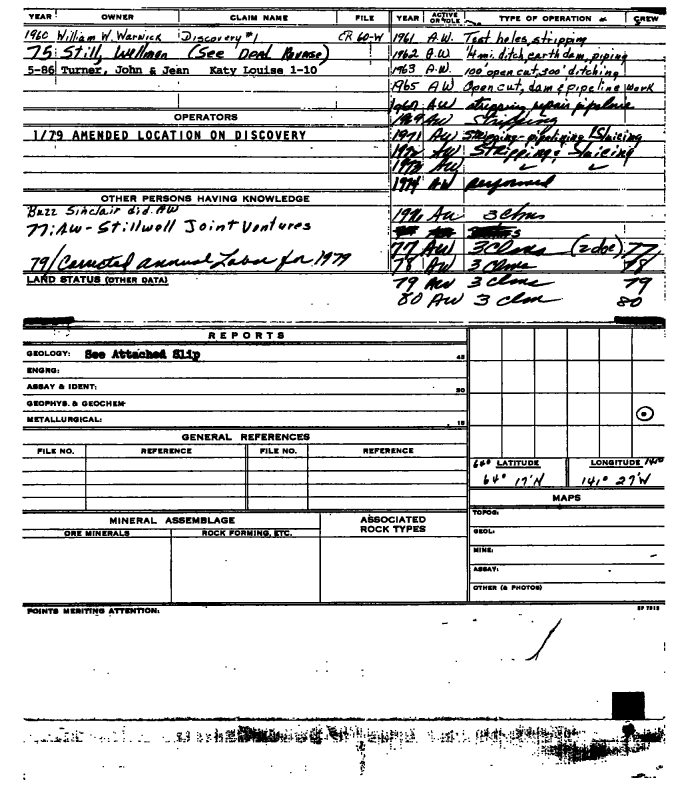 YEAR OWNER CLAIM NAME FILE
1960 William W. Warwick Discovery #1 CR 60-W
75 Still, Wellman (See Reverse)
5-86 Turner, John & Jean Katy Louise 1-10
OPERATORS
1/79 AMENDED LOCATION ON DISCOVERY
OTHER PERSONS HAVING KNOWLEDGE
Buzz Sinclair did AW
77: AW - Stillwell Joint Ventures
79/Corrected annual Labor for 1979
LAND STATUS (OTHER DATA)
YEAR ACTIVE OR IDLE TYPE OF OPERATION CREW
1961 A.W. Test holes, stripping
1962 A.W. 1/4 mi. ditch, earth dam, piping
1963 A.W. 100' open cut, 300' ditching
1965 AW Open cut, dam & pipeline work
1967 AW stripping repair pipeline
1969 AW stripping
1971 AW Stripping-pipelining & Sluicing
1972 AW Stripping & Sluicing
1973 AW
1974 AW performed
1976 AW 3 clms
77 AW 3 Clms (2 doc) 77
78 AW 3 Clms 78
79 AW 3 clms 79
80 AW 3 clm 80
REPORTS
GEOLOGY: See Attached Slip 45
ENGRG:
ASSAY & IDENT: 30
GEOPHYS. & GEOCHEM
METALLURGICAL: 15
GENERAL REFERENCES
FILE NO. REFERENCE FILE NO. REFERENCE
64° LATITUDE LONGITUDE 141°
64° 17'N 141° 27'W
MAPS
TOPOG:
GEOL:
MINE:
ASSAY:
OTHER (& PHOTOS)
MINERAL ASSEMBLAGE ASSOCIATED ROCK TYPES
ORE MINERALS ROCK FORMING, ETC.
POINTS MERITING ATTENTION:
SP 7812